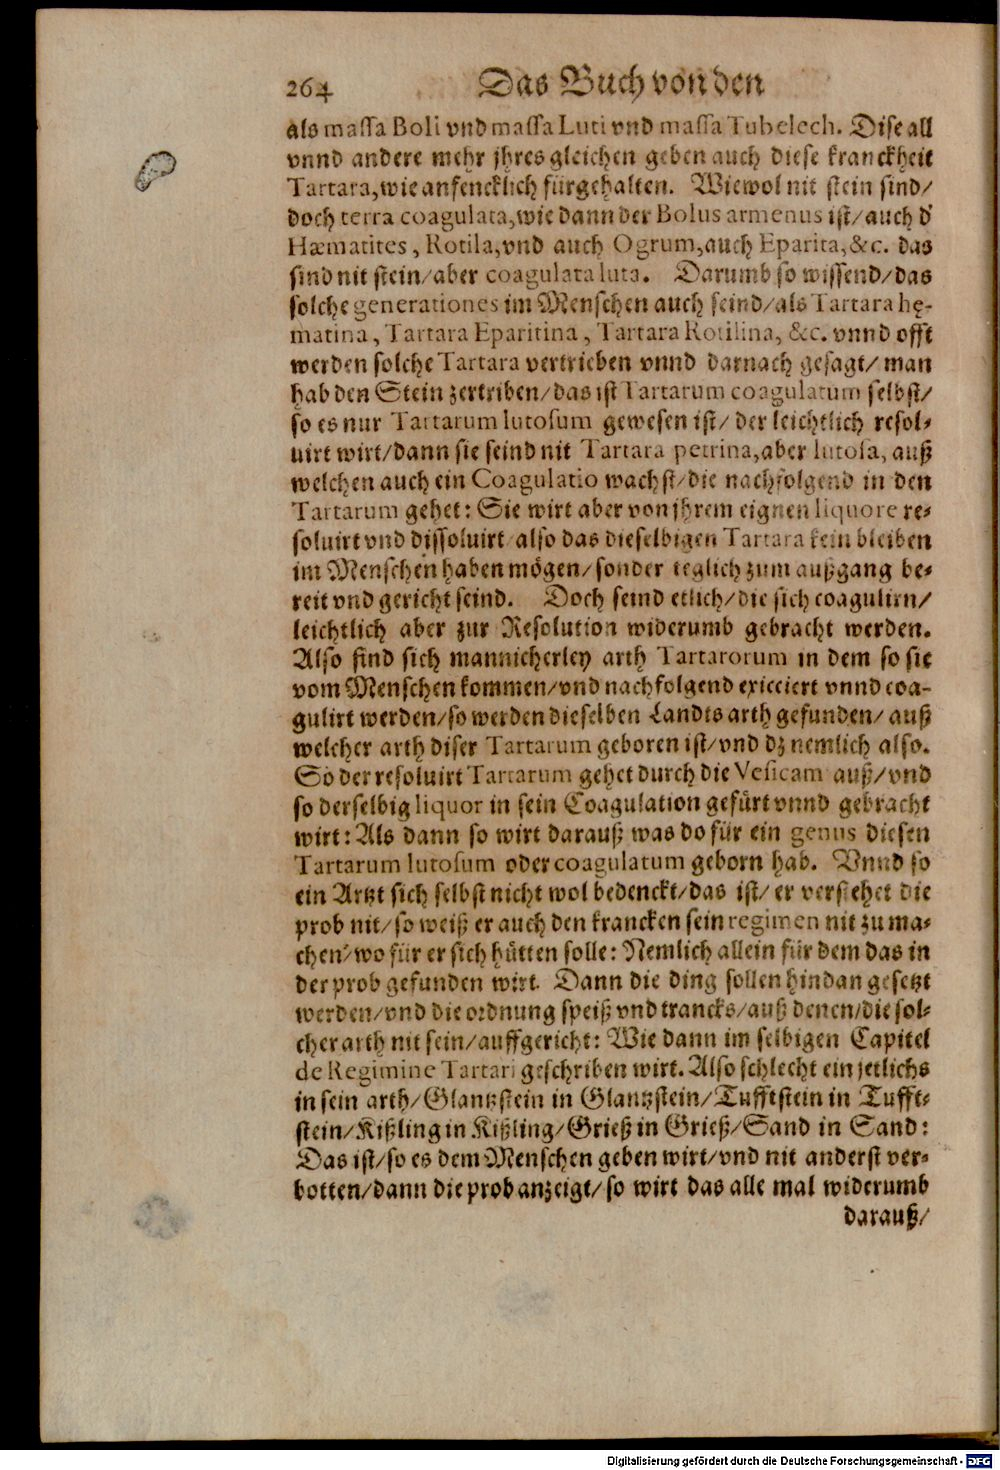 264 Das Buch von den
als massa Boli vnd massa Luti vnd massa Tubelech. Dise all
vnnd andere mehr jhres gleichen geben auch diese kranckheit
Tartara, wie anfencklich fürgehalten. Wiewol nit stein sind/
doch terra coagulata, wie dann der Bolus armenus ist/ auch d'
Hæmatites, Rotila, vnd auch Ogrum, auch Eparita, &c. das
sind nit stein/ aber coagulata luta. Darumb so wissend/ das
solche generationes im Menschen auch seind/ als Tartara hę-
matina, Tartara Eparitina, Tartara Rotilina, &c. vnnd offt
werden solche Tartara vertrieben vnnd darnach gesagt/ man
hab den Stein zertriben/ das ist Tartarum coagulatum selbst/
so es nur Tartarum lutosum gewesen ist/ der leichtlich resol-
uirt wirt/ dann sie seind nit Tartara petrina, aber lutosa, auß
welchen auch ein Coagulatio wachst/ die nachfolgend in den
Tartarum gehet: Sie wirt aber von jhrem eignen liquore re-
soluirt vnd dissoluirt/ also das dieselbigen Tartara kein bleiben
im Menschen haben mögen/ sonder teglich zum außgang be-
reit vnd gericht seind. Doch seind etlich/ die sich coagulirn/
leichtlich aber zur Resolution widerumb gebracht werden.
Also find sich mannicherley arth Tartarorum in dem so sie
vom Menschen kommen/ vnd nachfolgend exicciert vnnd coa-
gulirt werden/ so werden dieselben Landts arth gefunden/ auß
welcher arth diser Tartarum geboren ist/ vnd dz nemlich also.
So der resoluirt Tartarum gehet durch die Vesicam auß/ vnd
so derselbig liquor in sein Coagulation gefürt vnnd gebracht
wirt: Als dann so wirt darauß was do für ein genus diesen
Tartarum lutosum oder coagulatum geborn hab. Vnnd so
ein Artzt sich selbst nicht wol bedenckt/ das ist/ er verstehet die
prob nit/ so weiß er auch den krancken sein regimen nit zu ma-
chen/ wo für er sich hütten solle: Nemlich allein für dem das in
der prob gefunden wirt. Dann die ding sollen hindan gesetzt
werden/ vnd die ordnung speiß vnd trancks/ auß denen/ die sol-
cher arth nit sein/ auffgericht: Wie dann im selbigen Capitel
de Regimine Tartari geschriben wirt. Also schlecht ein jetlichs
in sein arth/ Glantzstein in Glantzstein/ Tufftstein in Tufft-
stein/ Kißling in Kißling/ Grieß in Grieß/ Sand in Sand:
Das ist/ so es dem Menschen geben wirt/ vnd nit anderst ver-
botten/ dann die prob anzeigt/ so wirt das alle mal widerumb
darauß/
Digitalisierung gefördert durch die Deutsche Forschungsgemeinschaft - DFG